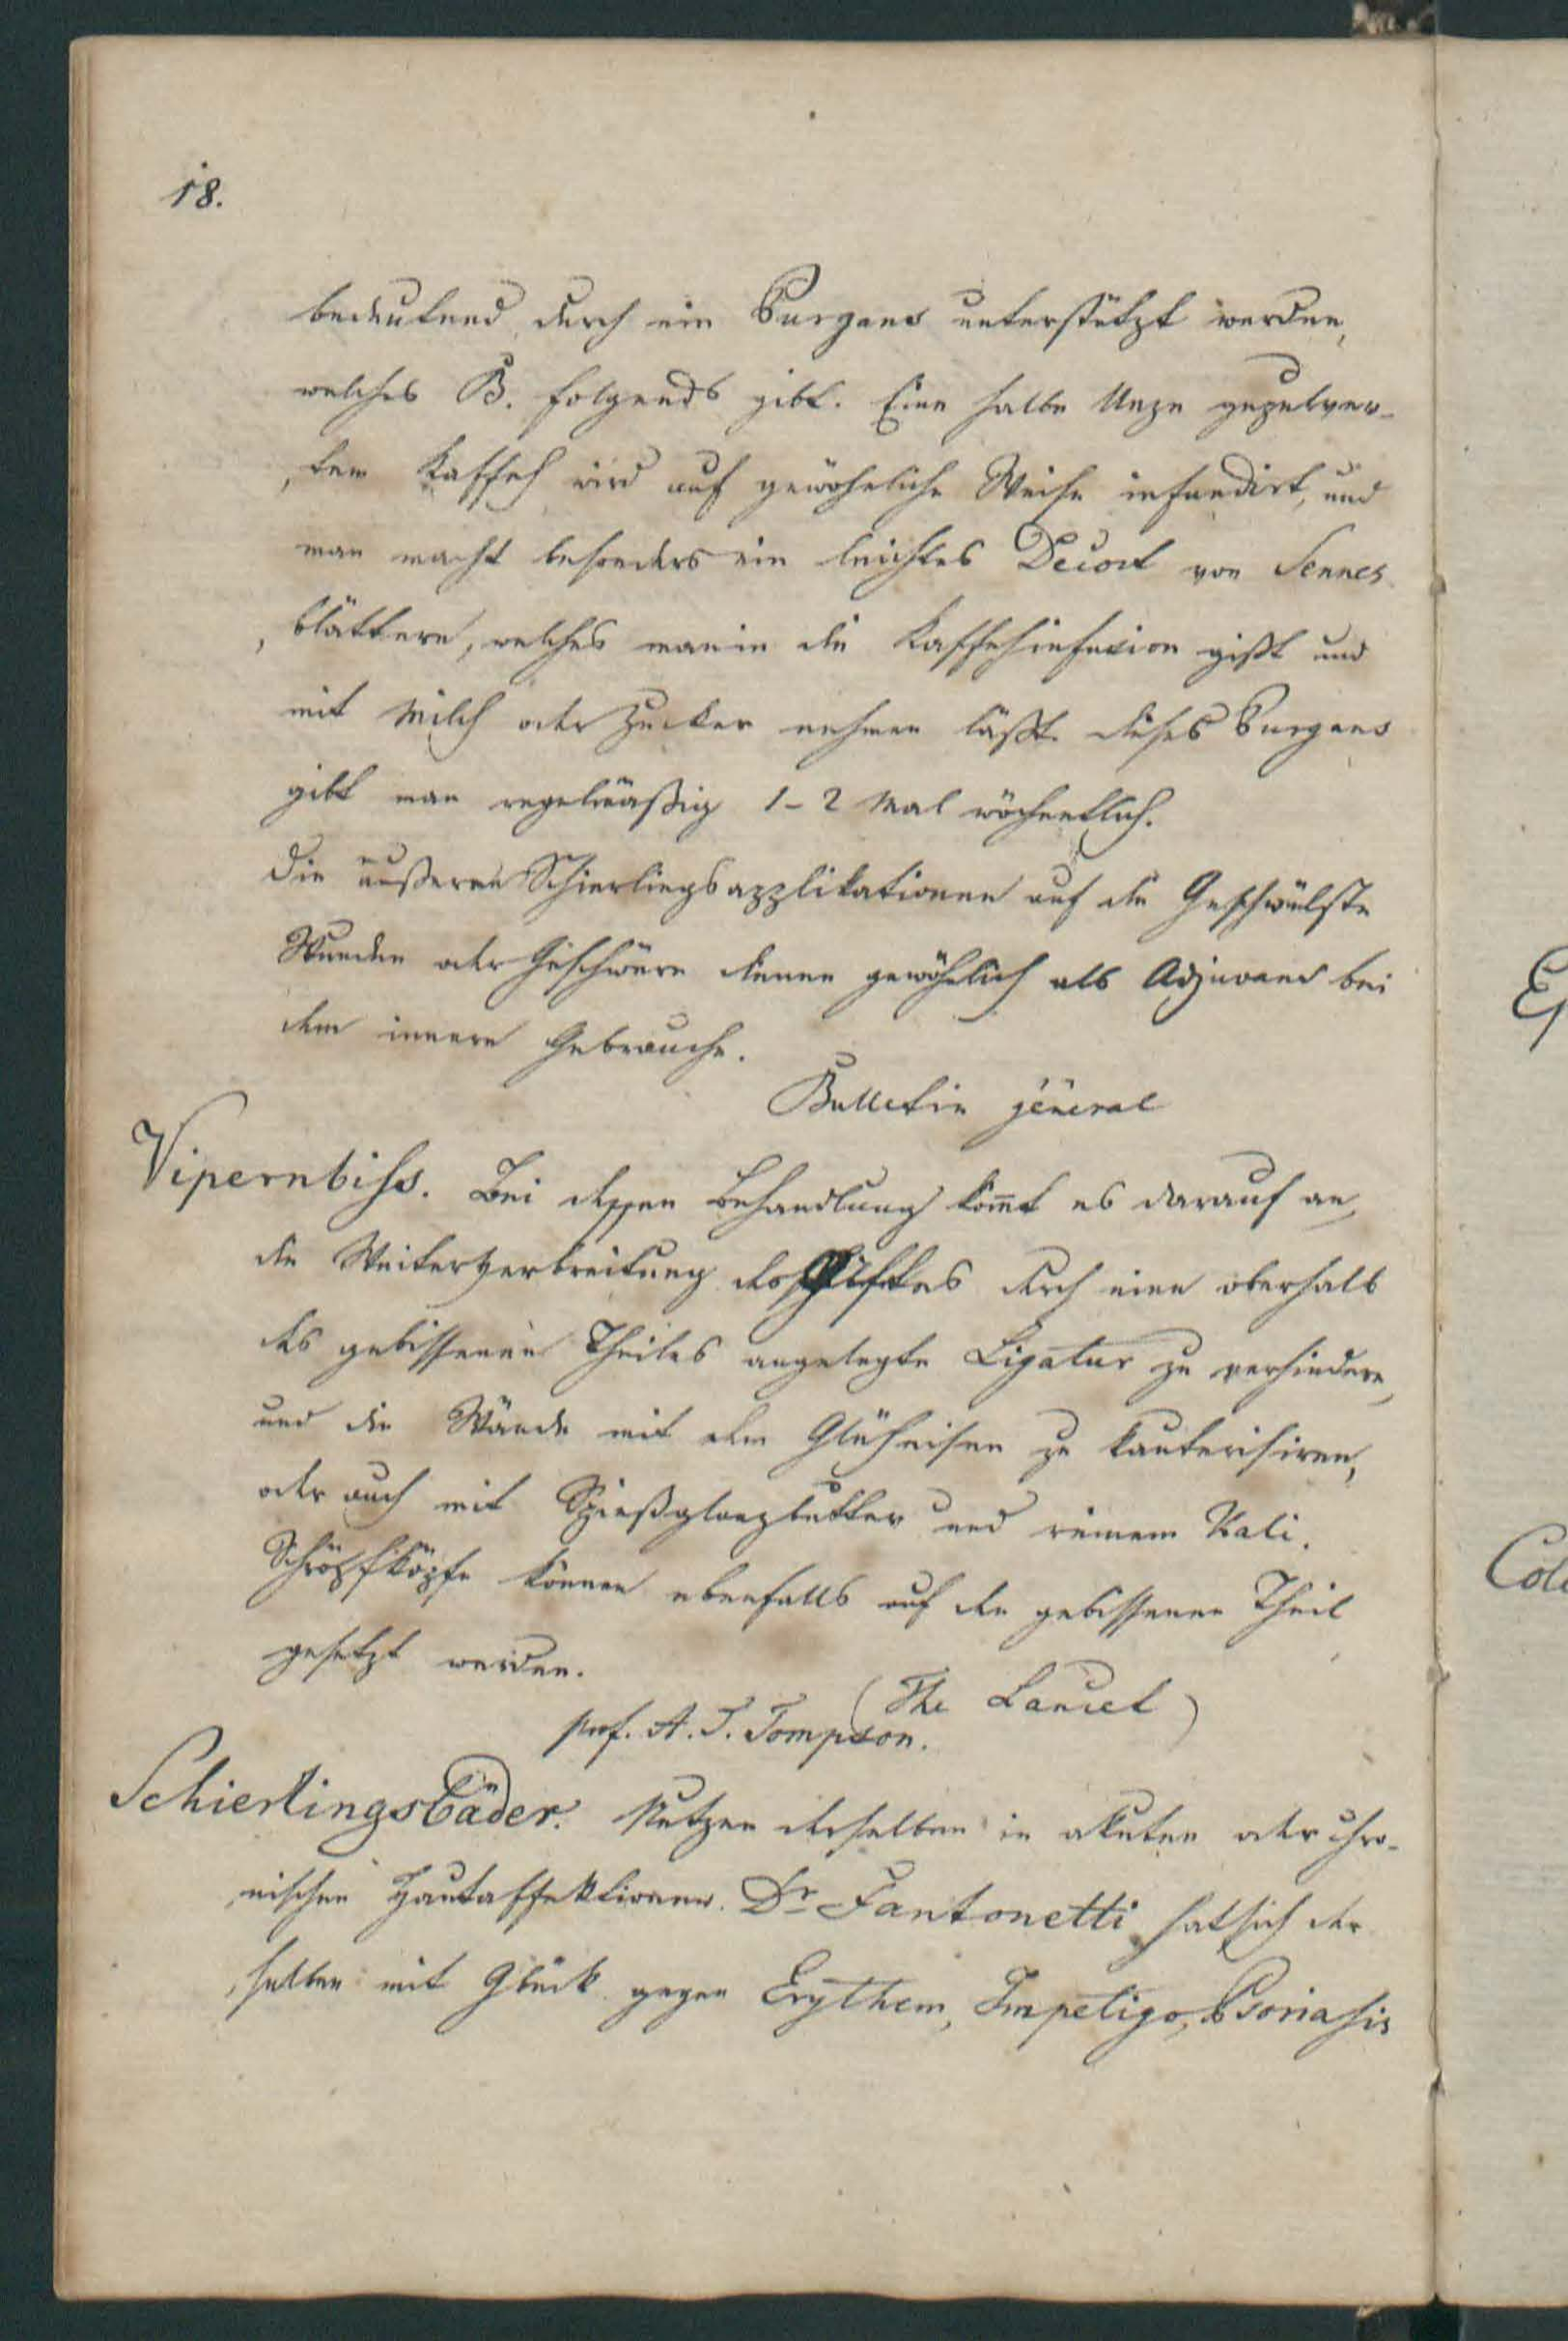 18.
bedeutend durch ein Purgans unterstützt werden,
welches B. folgends gibt. Eine halbe Unze gepulver-
tem Kaffeh wird auf gewöhnliche Weise infundirt, und
man macht besonders ein leichtes Decoct von Sennes
blättern, welches man in die Kaffehinfusion gißt und
mit Milch oder Zucker nehmen läßt. Dieses Purgans
gibt man regelmäßig 1-2 Mal wöchentlich.
Die äußeren Schierlingsapplikationen auf die Geschwülste
Wunden oder Geschwüre dienen gewöhnlich als Adjuvans bei
dem innern Gebrauche.
Bulletin géneral
Vipernbiss. Bei dessen Behandlung kom̄t es darauf an,
die Weiterverbreitung des Giftes durch eine oberhalb
des gebissenen Theiles angelegte Ligatur zu verhindern,
und die Wunde mit dem Glüheisen zu kauterisiren,
oder auch mit Spießglanzbutter und reinem Kali.
Schröpfköpfe können ebenfalls auf den gebissenen Theil
gesetzt werden.
(The Lancet)
prof. A. T. Tompson.
Schierlingsbäder. Nutzen derselben in akuten oder chro-
nischen Hautaffektionen. Dr Fantonetti hat sich der
selben mit Glück gegen Erythem, Impetigo, Psoriasis
Ep
Col